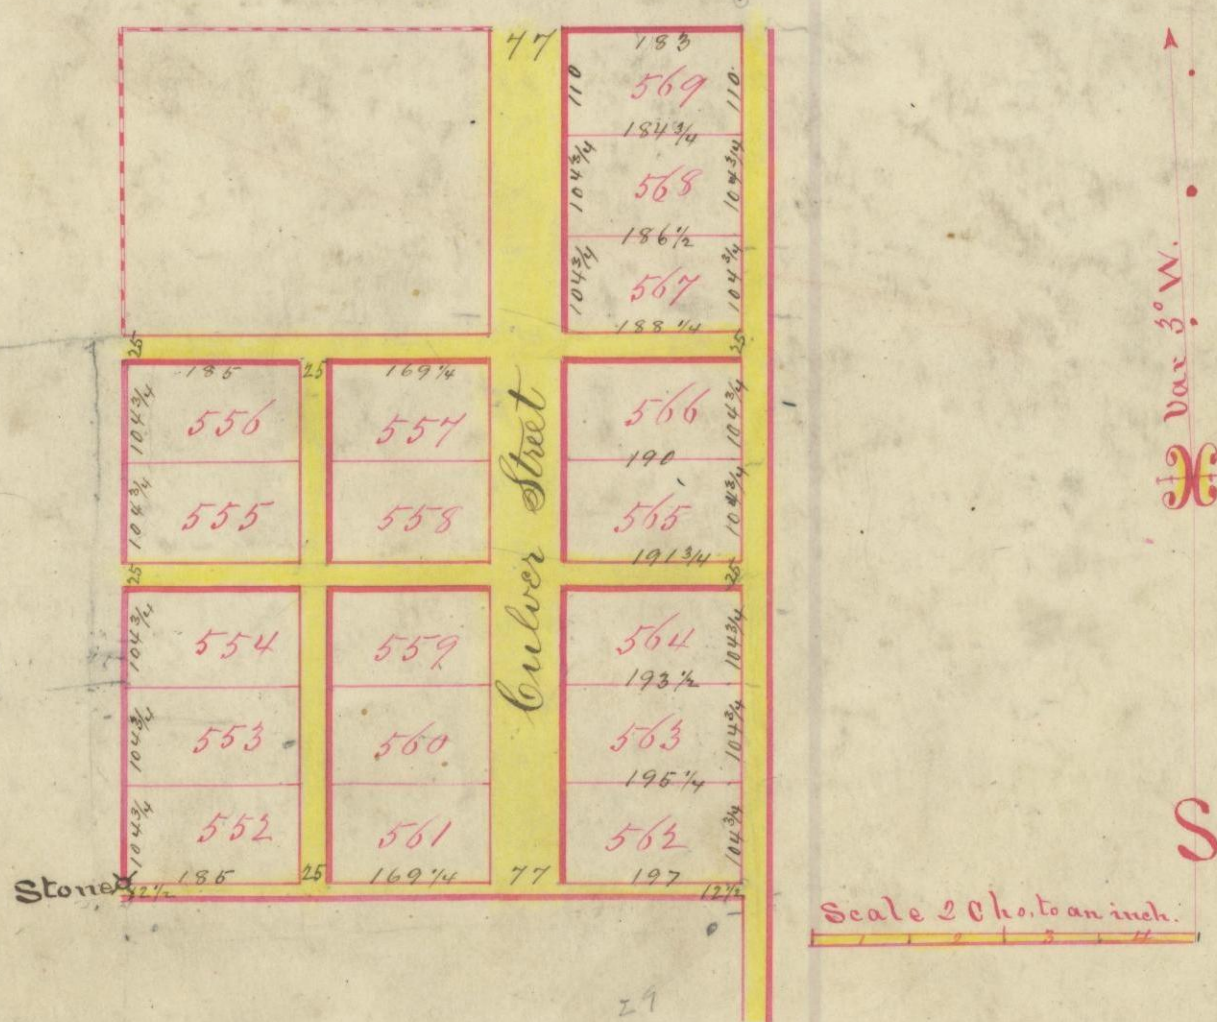 77
183
110
569
110
184 3/4
104 3/4
568
104 3/4
186 1/2
104 3/4
567
104 3/4
188 1/4
25
25
185
25
169 1/4
104 3/4
556
557
566
104 3/4
190
104 3/4
555
558
565
104 3/4
191 3/4
25
25
Culver Street
104 3/4
554
559
564
104 3/4
193 1/2
104 3/4
553
560
563
104 3/4
195 1/4
104 3/4
552
561
562
104 3/4
Stone
12 1/2
185
25
169 1/4
77
197
12 1/2
Var 3° W.
S
Scale 2 Chs. to an inch.
1 2 3 4